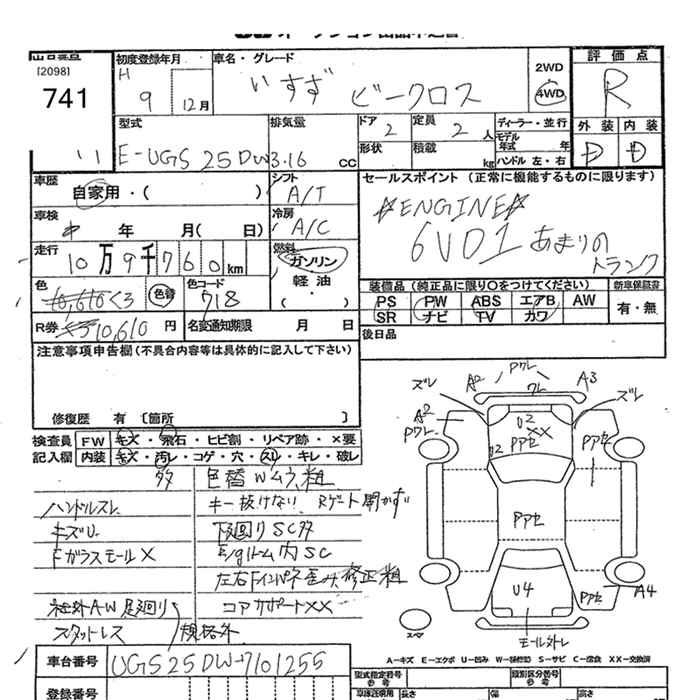 オークション出品申込書
出品番号
[2098]
741
初度登録年月
H 9 12月
車名・グレード
いすず ビークロス
2WD
4WD
評価点
R
型式
E-UGS25DW
排気量
3.16 cc
ドア
2
定員
2 人
ディーラー・並行
モデル年式 年
外装 内装
D D
形状
積載 kg
ハンドル 左・右
車歴
自家用・( )
シフト
A/T
セールスポイント (正常に機能するものに限ります)
☆ENGINE☆
6VD1 あまりの
トランク
車検
年 月( 日)
冷房
A/C
走行
10万9千760km
燃料
ガソリン
軽油
( )
色
色替
色コード
718
装備品 (純正品に限り○をつけてください)
新車保証書
PS PW ABS エアB AW
SR ナビ TV カワ
有・無
R券 10,610円
名変通知期限 月 日
後日品
注意事項申告欄(不具合内容等は具体的に記入して下さい)
修復歴 有 [箇所 ]
検査員記入欄
FW キズ・飛石・ヒビ割・リペア跡・×要
内装 キズ・汚レ・コゲ・穴・スレ・キレ・破レ
多 色替Wムラ、粗
ハンドルスレ キー抜けない Rゲート開かず
キズU. 下廻りSC多
FガラスモールX E/gルーム内SC
左右Fインパネ歪ミ 修正粗
社外AW 足廻り コアサポートXX
スタットレス 規格外
車台番号
UGS25DW-7101255
登録番号
ズレ A2 PワレA3 ズレ
ワレ
A2
Pワレ
U2
XX
PPセ
U2
PPセ
PPセ
U4
PPセ A4
モール外レ
スペア
A-キズ E-エクボ U-凹み W-補修跡 S-サビ C-腐食 XX-交換済
型式指定番号
参考
類別区分番号
参考
車庫証明用
長さ
幅
高さ